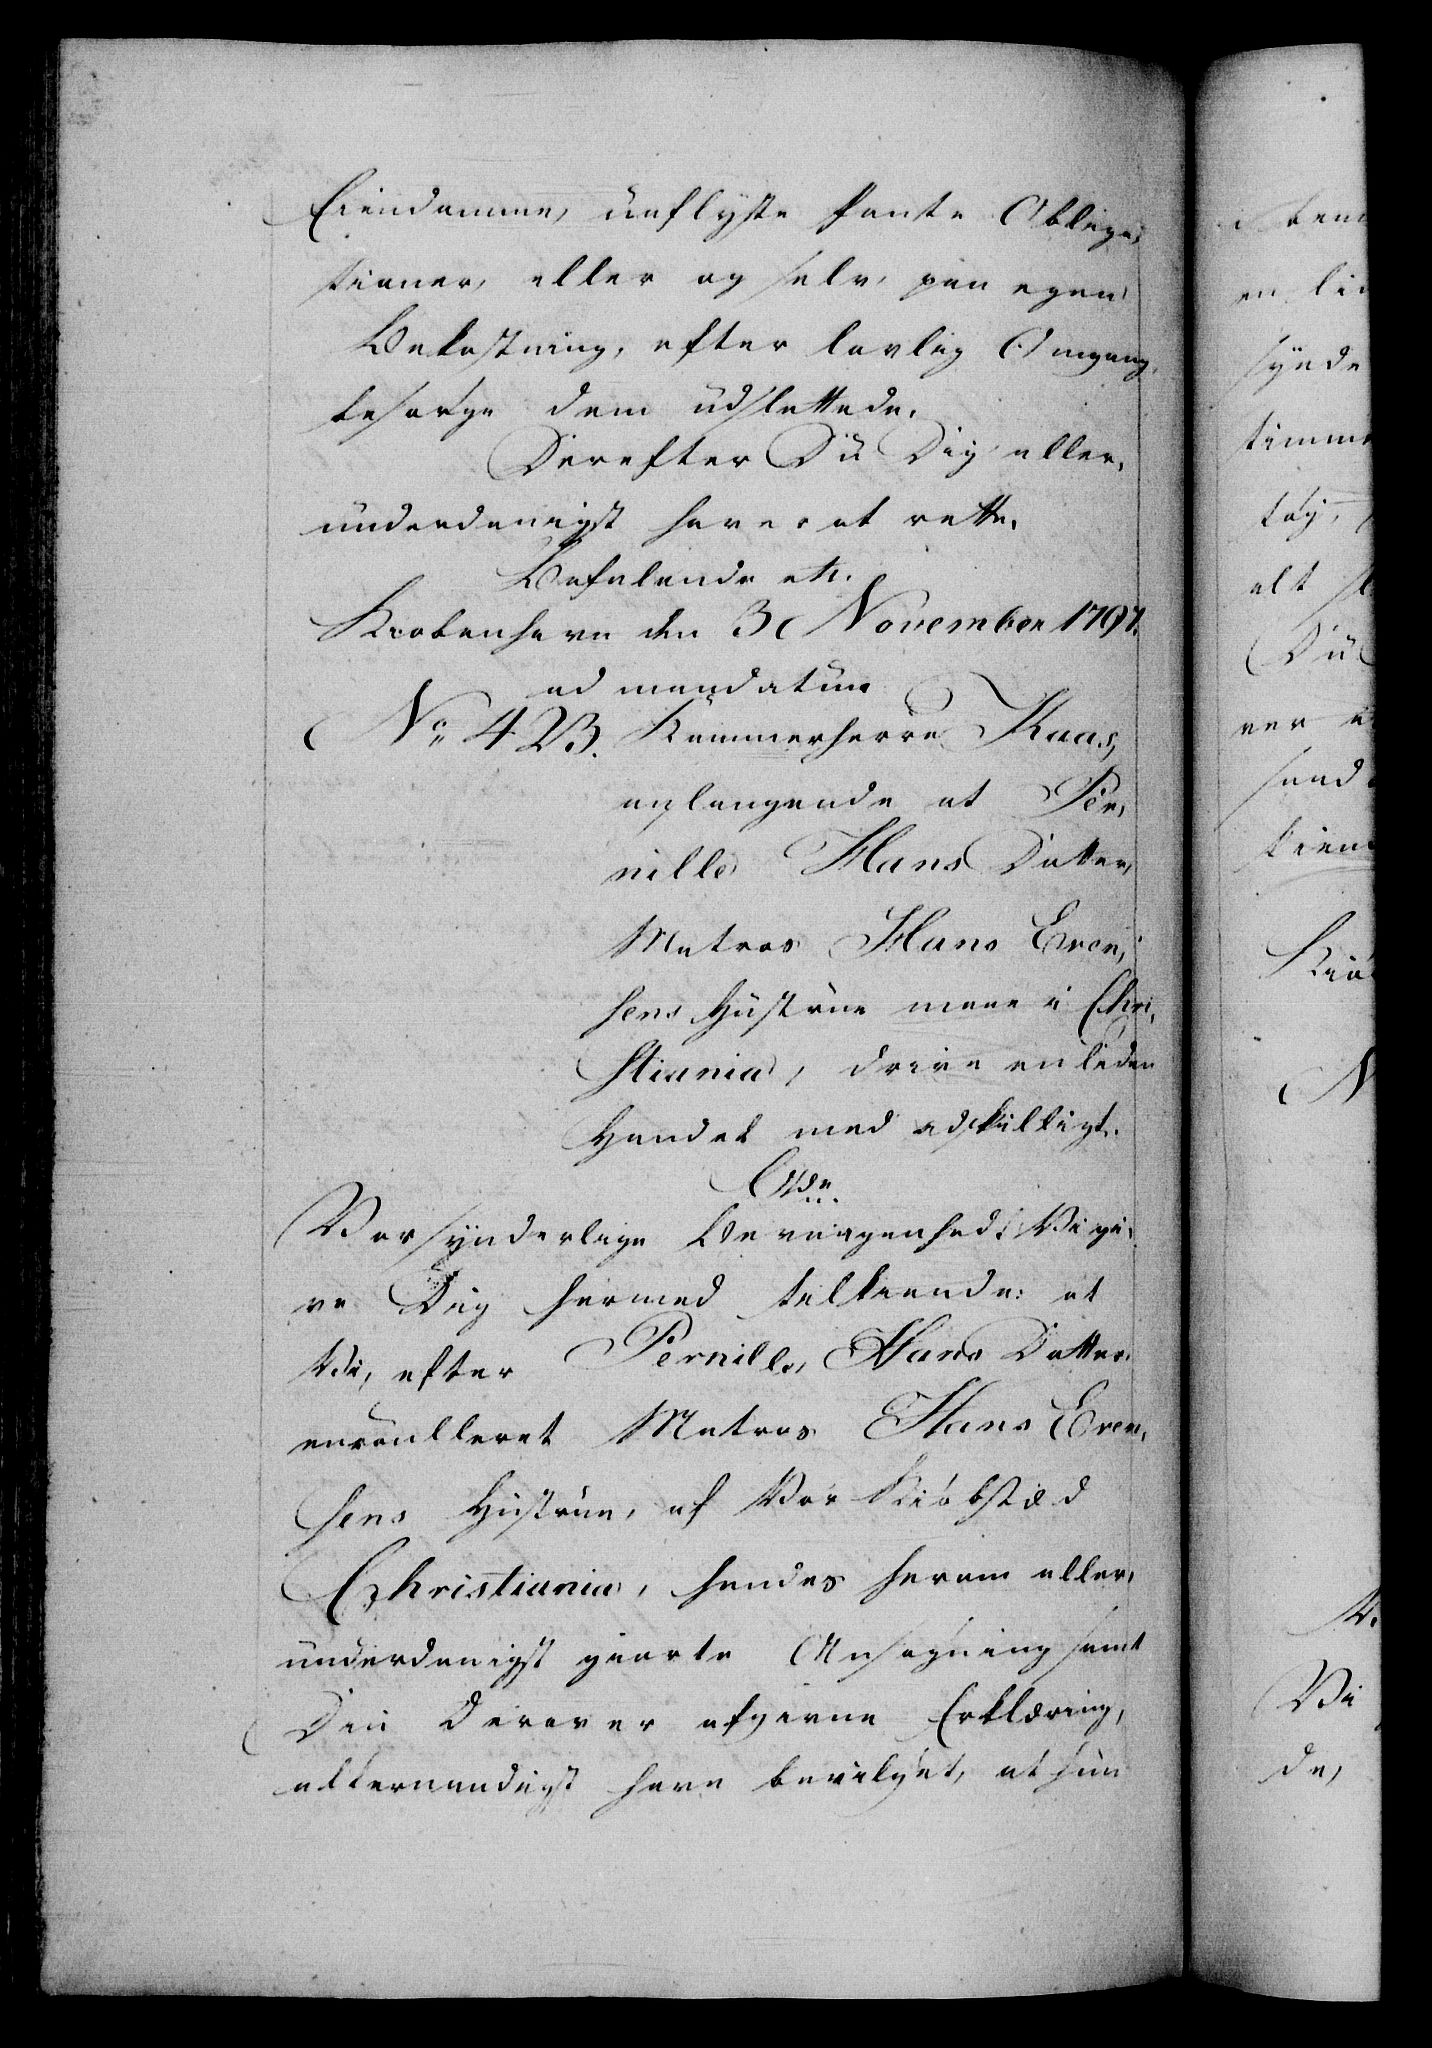 Eiendomme, uaflyste Pante Obliga-
tioner, eller og selv, paa egen
Bekostning, efter lovlig Omgang,
besørge dem udslettede.
Derefter Du Dig aller-
underdanigst haver at rette.
Befalende etc.
Kiøbenhavn den 3 November 1797.
ad mandatum
No. 423. Kammerherre Kaas,
anlangende at Per-
nille Hans Datter,
Matros Hans Even-
sens Hustrue maae i Chri-
stiania, drive en liden
Handel med adskilligt.
Vor synderlige Bevaagenhed! Vi gi-
ve Dig hermed tilkiende: at
Vi, efter Pernille Hans Datter
enroulleret Matros Hans Even-
sens Hustrue, af Vor Kiøbstæd
Christiania, hendes herom aller-
underdanigst giorte Ansøgning samt
Din derover afgivne Erklæring,
allernaadigst have bevilget, at hun
synde
timme
tøy,
alt
Du
Kiøb
Vi
de,